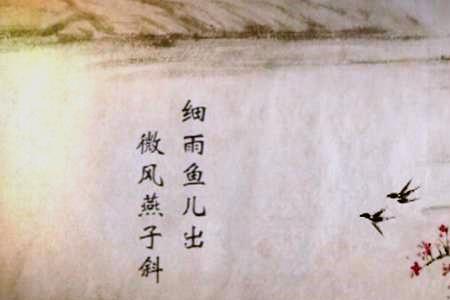 细雨鱼儿出
微风燕子斜